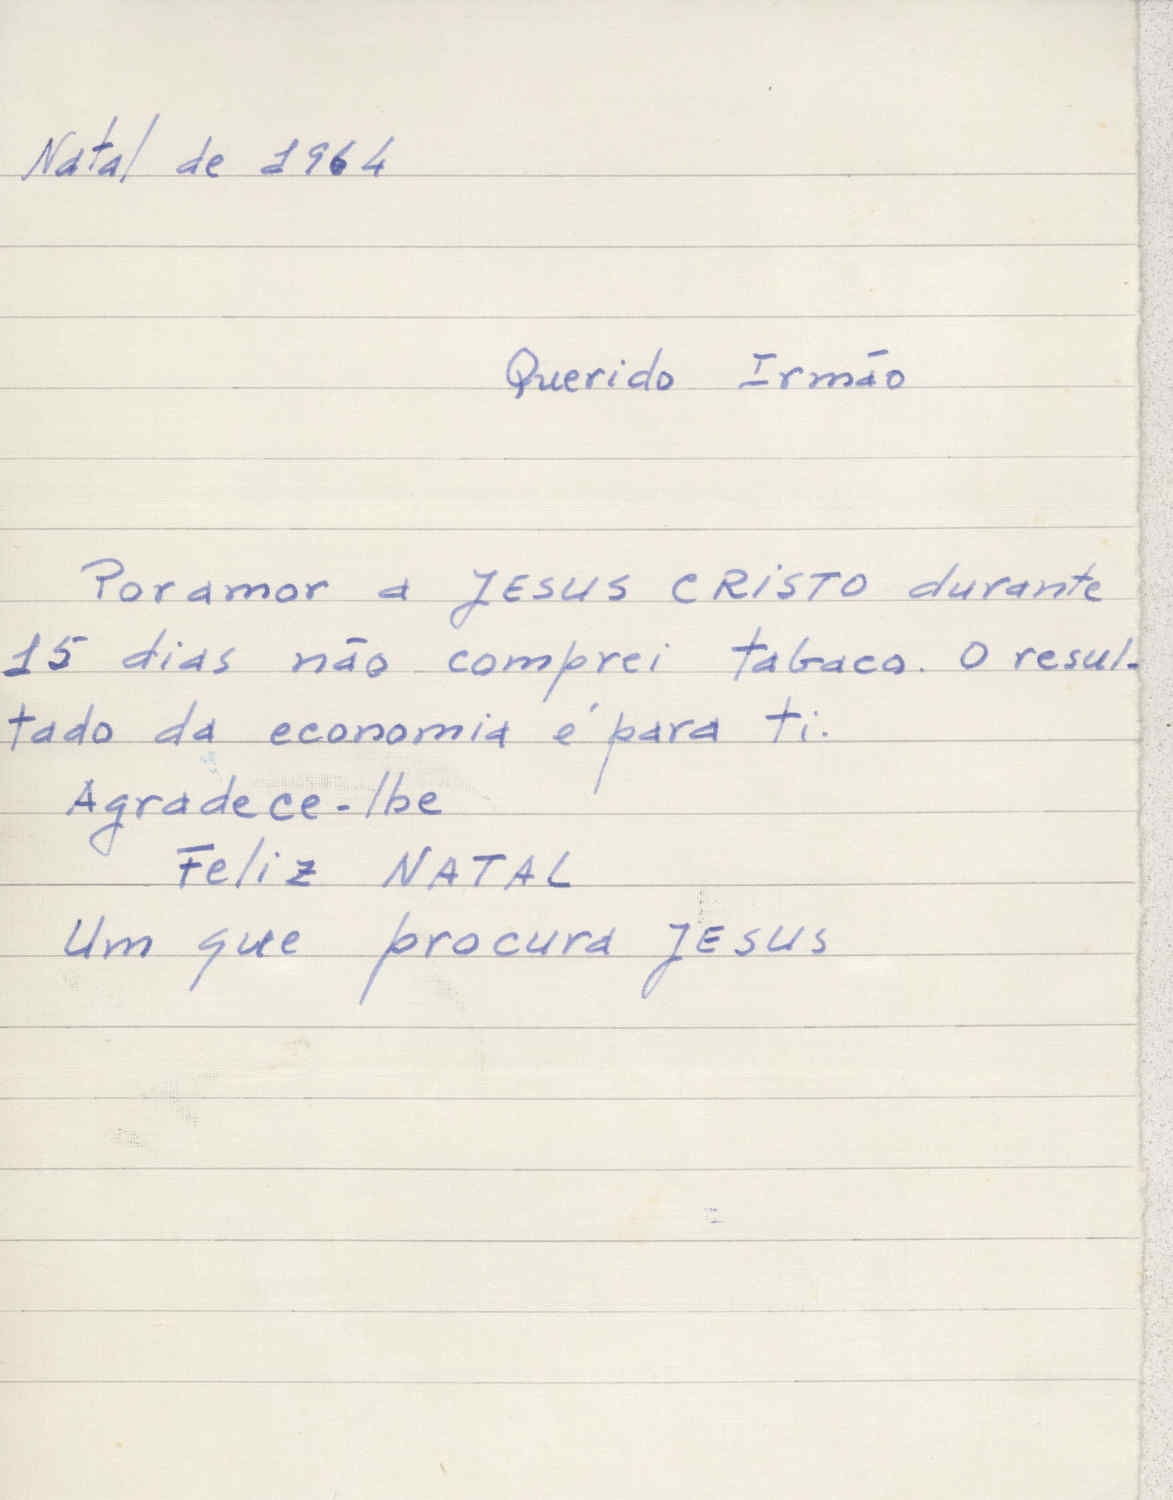 Natal de 1964
Querido Irmão
Por amor a JESUS CRISTO durante
15 dias não comprei tabaco. O resul-
tado da economia é para ti.
Agradece-lhe
Feliz NATAL
Um que procura JESUS